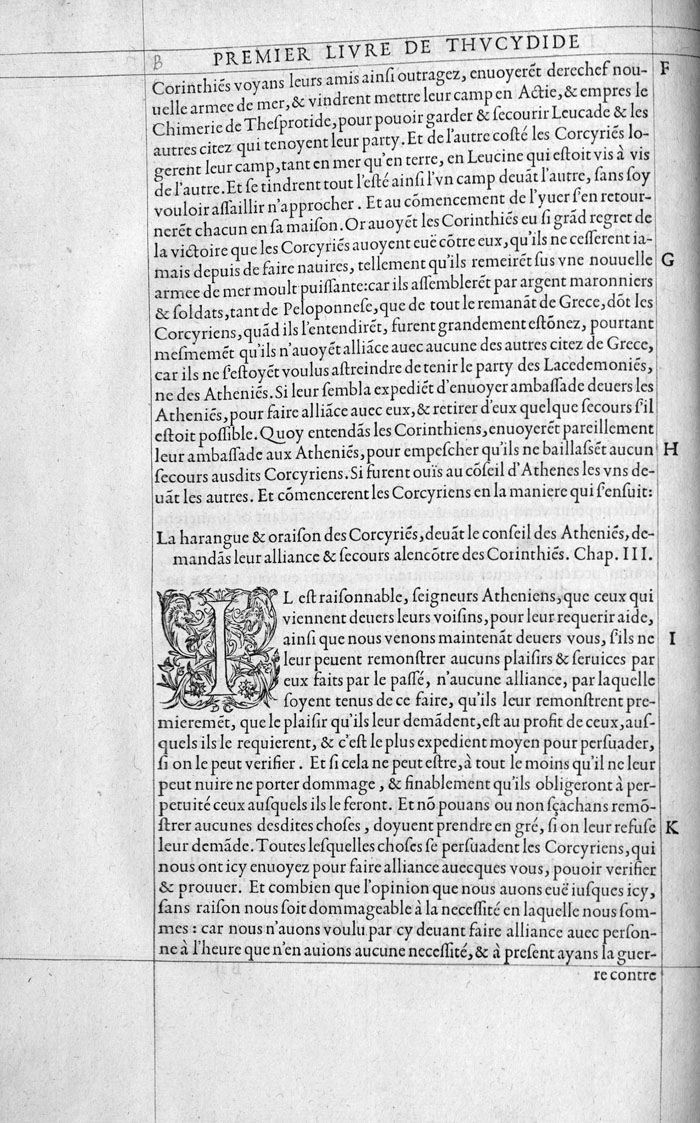 B PREMIER LIVRE DE THVCYDIDE
Corinthiẽs voyans leurs amis ainſi outragez, enuoyerẽt derechef nou- F
uelle armee de mer, & vindrent mettre leur camp en Actie, & empres le
Chimerie de Theſprotide, pour pouoir garder & ſecourir Leucade & les
autres citez qui tenoyent leur party. Et de l'autre coſté les Corcyriẽs lo-
gerent leur camp, tant en mer qu'en terre, en Leucine qui eſtoit vis à vis
de l'autre. Et ſe tindrent tout l'eſté ainſi l'vn camp deuãt l'autre, ſans ſoy
vouloir aſſaillir n'approcher. Et au cõmencement de l'yuer ſ'en retour-
nerẽt chacun en ſa maiſon. Or auoyẽt les Corinthiẽs eu ſi grãd regret de
la victoire que les Corcyriẽs auoyent euë cõtre eux, qu'ils ne ceſſerent ia-
mais depuis de faire nauires, tellement qu'ils remeirẽt ſus vne nouuelle G
armee de mer moult puiſſante: car ils aſſemblerẽt par argent maronniers
& ſoldats, tant de Peloponneſe, que de tout le remanãt de Grece, dõt les
Corcyriens, quãd ils l'entendirẽt, furent grandement eſtõnez, pourtant
meſmemẽt qu'ils n'auoyẽt alliãce auec aucune des autres citez de Grece,
car ils ne ſ'eſtoyẽt voulus aſtreindre de tenir le party des Lacedemoniẽs,
ne des Atheniẽs. Si leur ſembla expediẽt d'enuoyer ambaſſade deuers les
Atheniẽs, pour faire alliãce auec eux, & retirer d'eux quelque ſecours ſ'il
eſtoit poſſible. Quoy entendãs les Corinthiens, enuoyerẽt pareillement
leur ambaſſade aux Atheniẽs, pour empeſcher qu'ils ne baillaſſẽt aucun H
ſecours auſdits Corcyriens. Si furent ouïs au cõſeil d'Athenes les vns de-
uãt les autres. Et cõmencerent les Corcyriens en la maniere qui ſ'enſuit:
La harangue & oraiſon des Corcyriẽs, deuãt le conſeil des Atheniẽs, de-
mandãs leur alliance & ſecours alencõtre des Corinthiẽs. Chap. III.
IL eſt raiſonnable, ſeigneurs Atheniens, que ceux qui
viennent deuers leurs voiſins, pour leur requerir aide,
ainſi que nous venons maintenãt deuers vous, ſ'ils ne I
leur peuent remonſtrer aucuns plaiſirs & ſeruices par
eux faits par le paſſé, n'aucune alliance, par laquelle
ſoyent tenus de ce faire, qu'ils leur remonſtrent pre-
mieremẽt, que le plaiſir qu'ils leur demãdent, eſt au profit de ceux, auſ-
quels ils le requierent, & c'eſt le plus expedient moyen pour perſuader,
ſi on le peut verifier. Et ſi cela ne peut eſtre, à tout le moins qu'il ne leur
peut nuire ne porter dommage, & finablement qu'ils obligeront à per-
petuité ceux auſquels ils le feront. Et nõ pouans ou non ſçachans remõ-
ſtrer aucunes deſdites choſes, doyuent prendre en gré, ſi on leur refuſe K
leur demãde. Toutes leſquelles choſes ſe perſuadent les Corcyriens, qui
nous ont icy enuoyez pour faire alliance auecques vous, pouoir verifier
& prouuer. Et combien que l'opinion que nous auons euë iuſques icy,
ſans raiſon nous ſoit dommageable à la neceſſité en laquelle nous ſom-
mes: car nous n'auons voulu par cy deuant faire alliance auec perſon-
ne à l'heure que n'en auions aucune neceſſité, & à preſent ayans la guer-
re contre